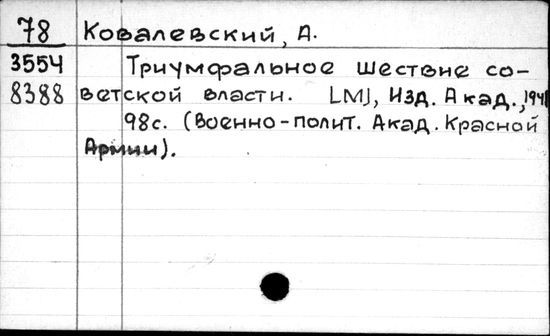 78 Ковалевский, А.
3554 Триумфальное шествие со-
8388 ветской власти. [М], Изд. Акад., 1941
98с. (Военно-полит. Акад. Красной
Армии).